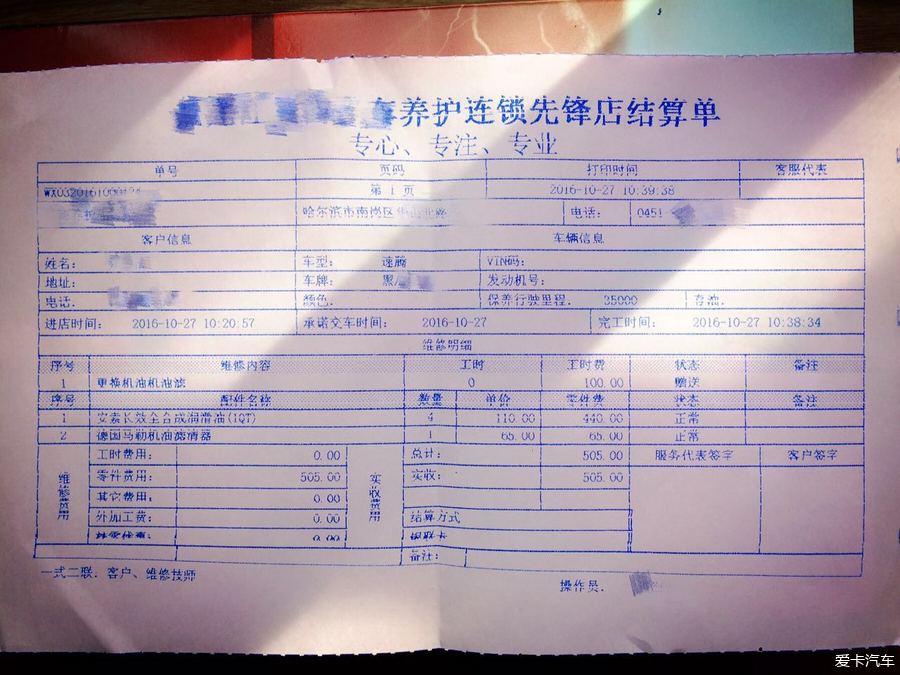 养护连锁先锋店结算单
专心、专注、专业
单号 页码 打印时间 客服代表
第 1 页 2016-10-27 10:39:38
哈尔滨市南岗区 电话: 0451
客户信息 车辆信息
姓名: 车型: 速腾 VIN码:
地址: 车牌: 黑 发动机号:
电话: 颜色: 保养行驶里程: 35000 存油:
进店时间: 2016-10-27 10:20:57 承诺交车时间: 2016-10-27 完工时间: 2016-10-27 10:38:34
维修明细
序号 维修内容 工时 工时费 状态 备注
1 更换机油机油滤 0 100.00 赠送
序号 配件名称 数量 单价 零件费 状态 备注
1 安索长效全合成润滑油(1QT) 4 110.00 440.00 正常
2 德国马勒机油滤清器 1 65.00 65.00 正常
维修费用 工时费用: 0.00 实收费用 总计: 505.00 服务代表签字 客户签字
零件费用: 505.00 实收: 505.00
其它费用: 0.00
外加工费: 0.00 结算方式
0.00 银联卡
备注:
一式二联: 客户、维修技师
操作员:
爱卡汽车